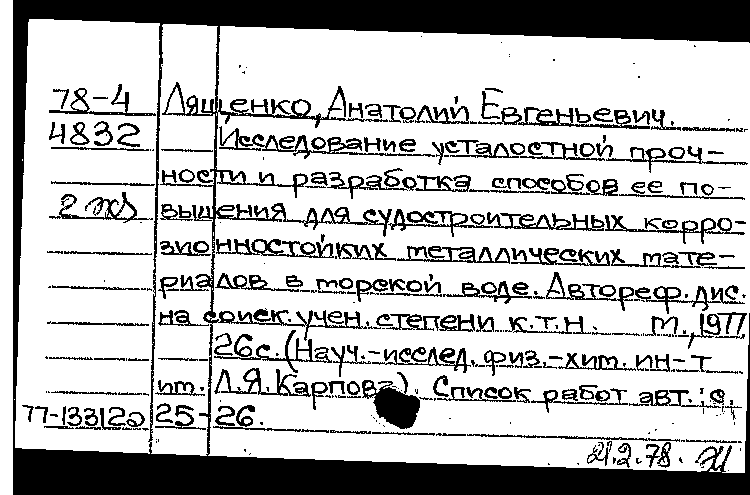 78-4 Лященко, Анатолий Евгеньевич.
4832 Исследование усталостной проч-
ности и разработка способов ее по-
2 экз вышения для судостроительных корро-
зионностойких металлических мате-
риалов в морской воде. Автореф. дис.
на соиск. учен. степени к.т.н. М., 1977
26с. (Науч.-исслед. физ.-хим. ин-т
им. Л.Я. Карпова). Список работ авт.: с.
77-13312а 25-26.
21.2.78.